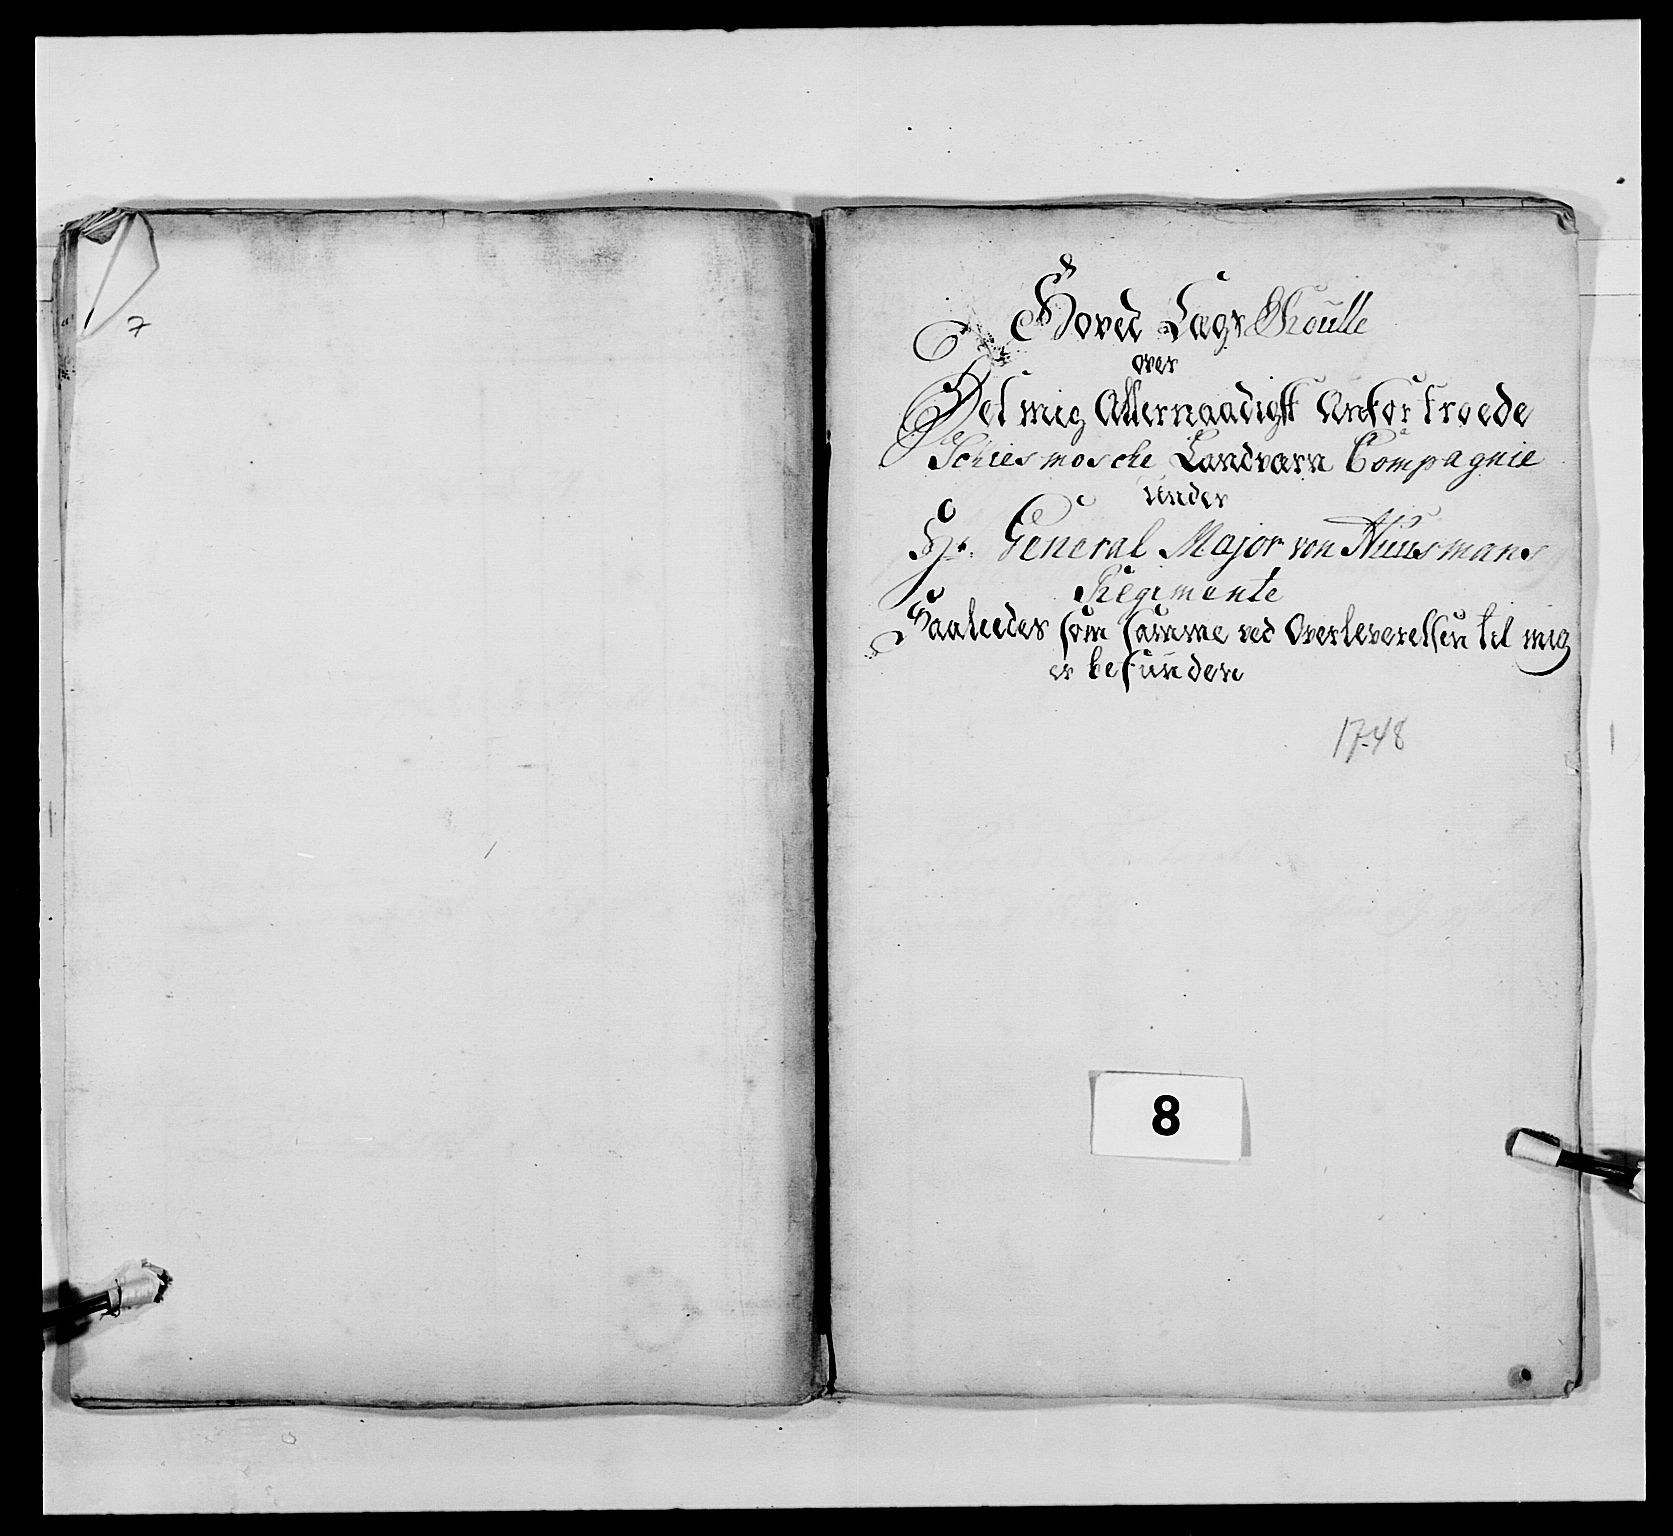 7
Hoved Lægs Roulle
over
Det mig Allernaadigst Anfortroede
Schiesmosche Landværn Compagnie
under
Hr. General Major von Huusmans
Regimente
Saaledes som samme ved Overleverelsen til mig
er befunden
1748
8